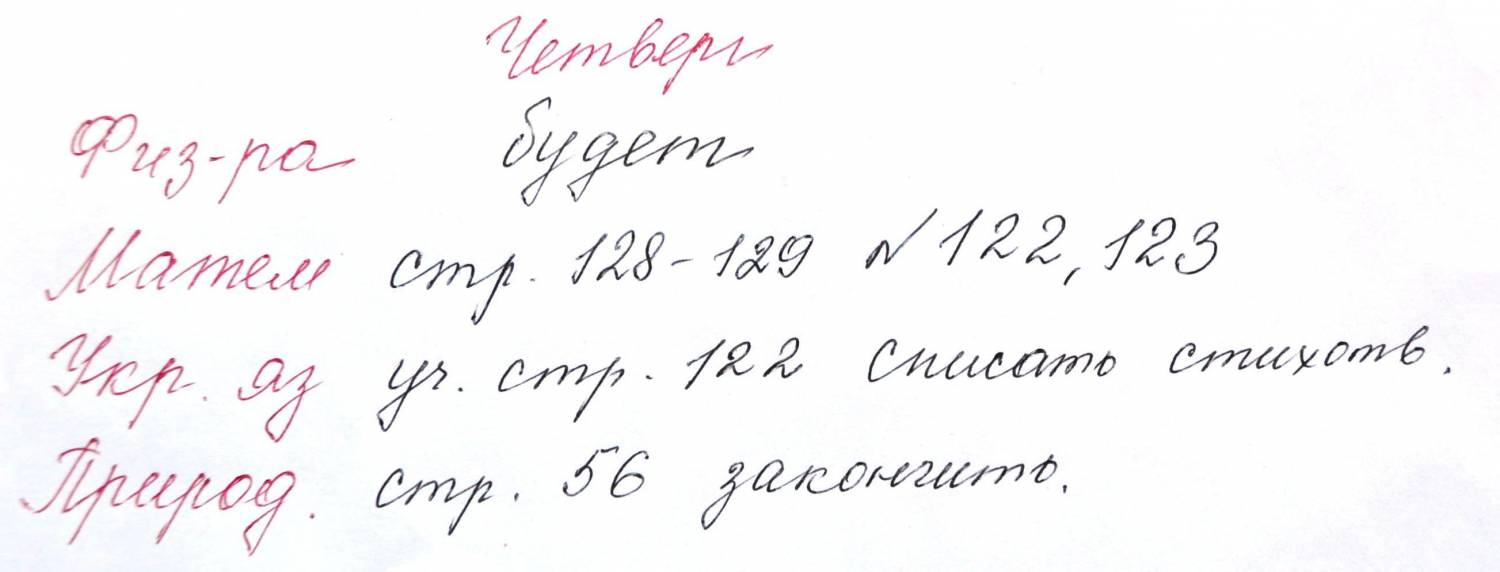 Четверг
Физ-ра будет
Матем стр. 128-129 № 122, 123
Укр. яз уч. стр. 122 Списать стихотв.
Природ. стр. 56 закончить.